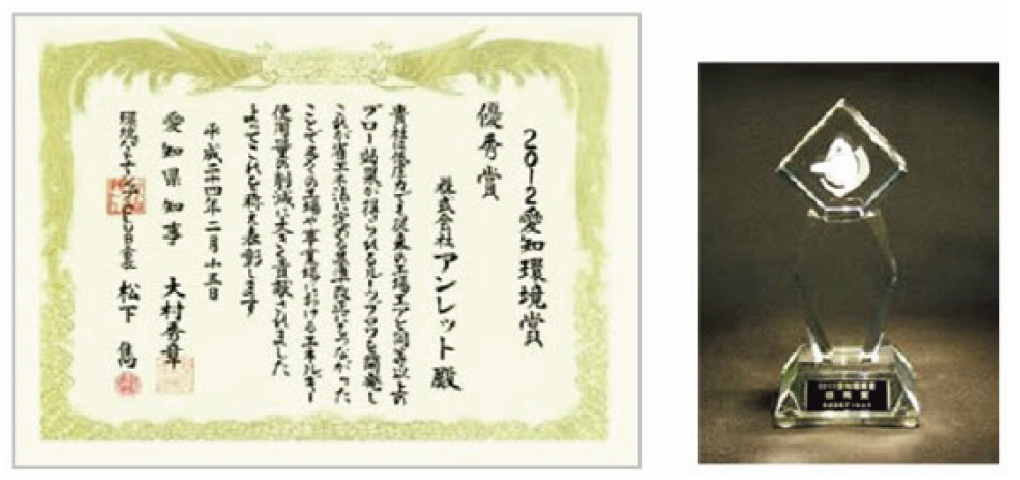 2012愛知環境賞
優秀賞
株式会社アンレット殿
貴社は低圧力でも従来の工場エアと同等以上の
ブロー効果が得られるルーツブロワを開発し
これが省エネ法に定める基準改正につながった
ことで多くの工場や事業場におけるエネルギー
使用量の削減に大きく貢献されました
よってこれを称え表彰します
平成二十四年二月十五日
愛知県知事 大村秀章
環境パートナーシップ・CLUB会長 松下 雋
2012愛知環境賞
優秀賞
株式会社アンレット